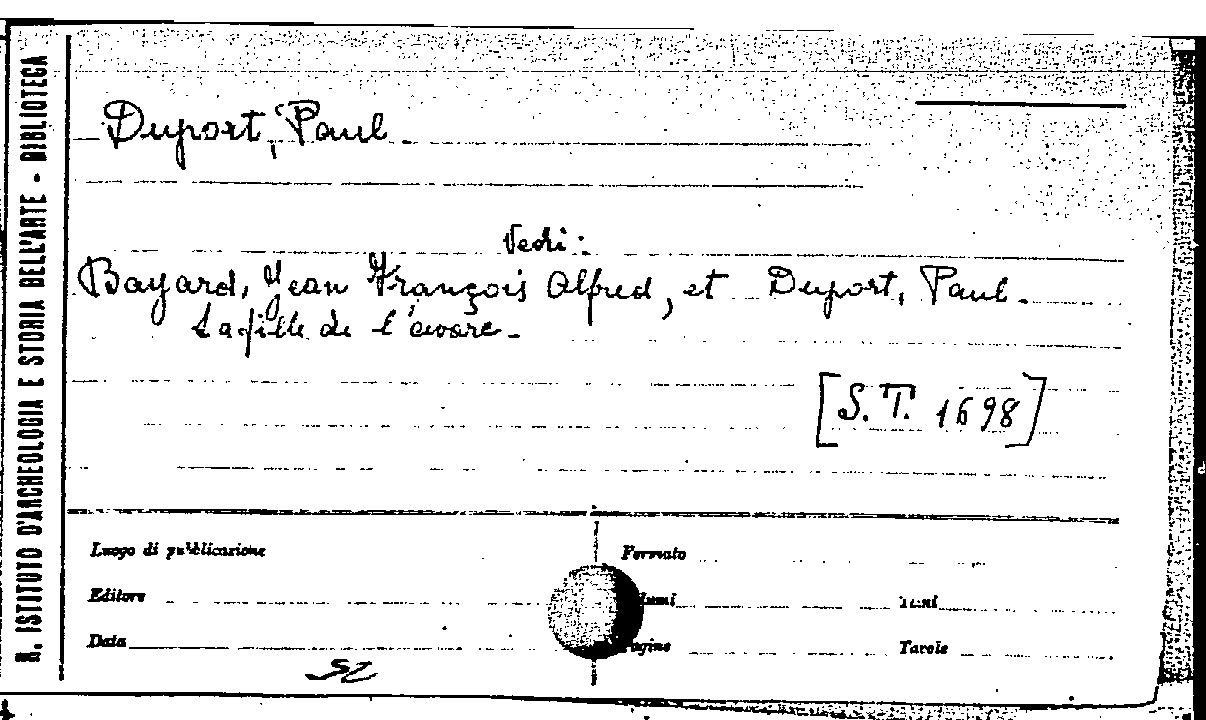 R. ISTITUTO D'ARCHEOLOGIA E STORIA DELL'ARTE - BIBLIOTECA
Duport, Paul.
Vedi:
Bayard, Jean François Alfred, et Duport, Paul.
La fille de l'avare.
[S. T. 1698]
Luogo di pubblicazione
Formato
Editore
Data
Pagine
Tavole